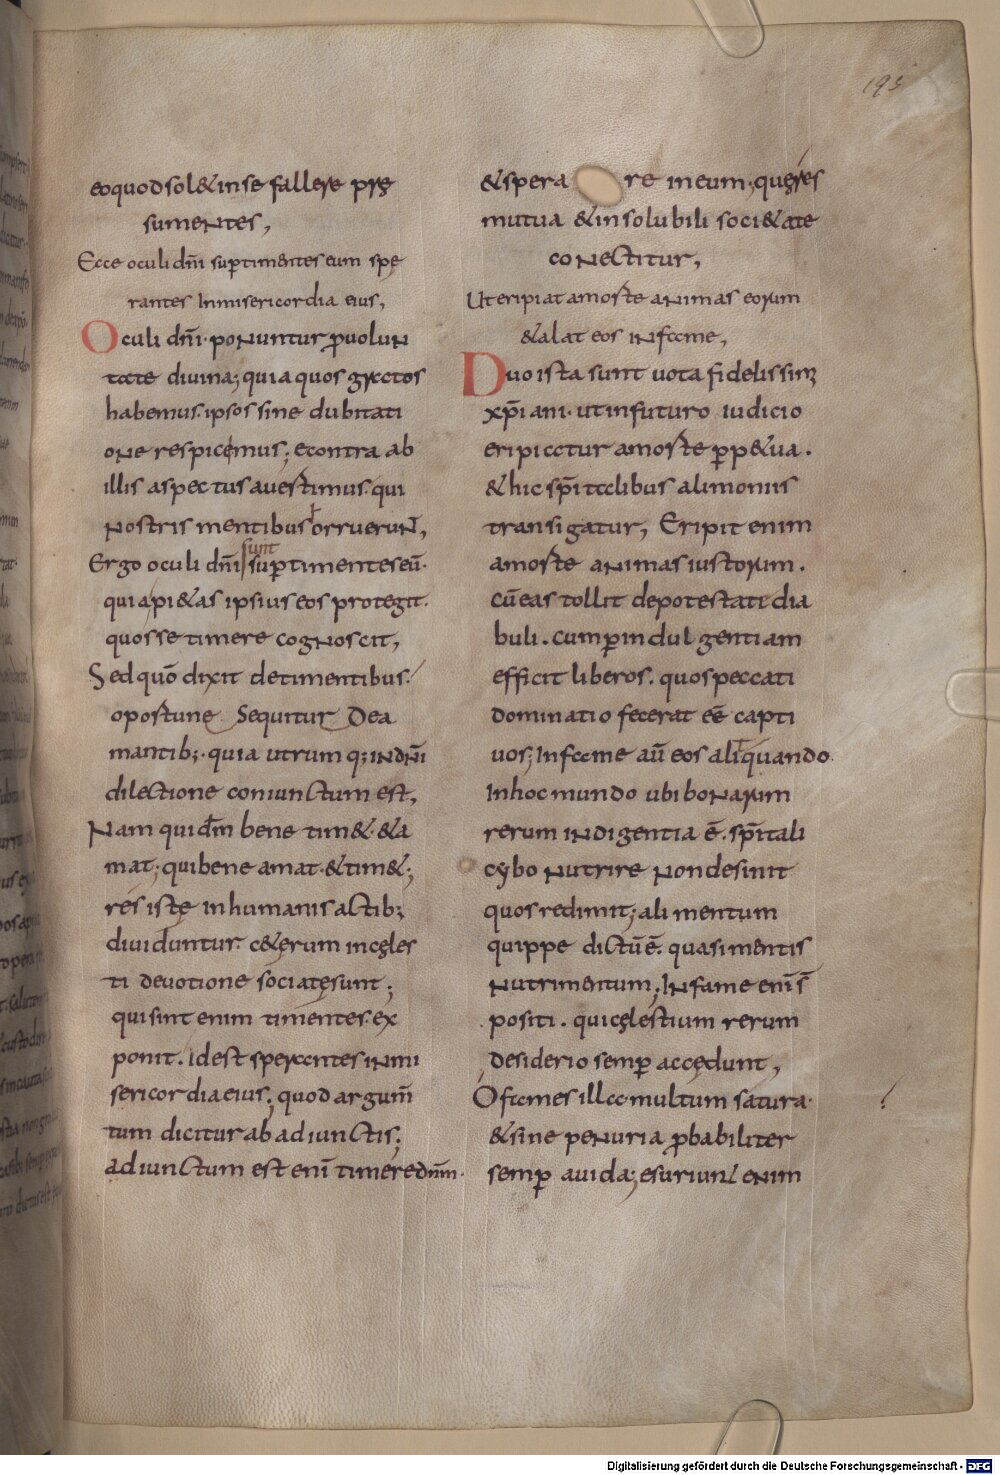 193
eoquod sol&inse fallere prę
sumentes,
Ecce oculi dn̄i sup timentes eum spę
rantes Inmisericordia eius,
Oculi dn̄i· ponuntur ꝓuolun
tate diuina; quia quos gratos
habemus· ipsos sine dubitati
one respicemus; econtra ab
illis aspectus auestimus· qui
nostris mentibus orruerunt,
Ergo oculi dn̄i sunt sup timentes eū·
qui api&as ipsius eos protegit·
quos se timere cognoscit,
Sed quō dixit detimentibus·
opostune Sequitur Dea
mantib;· quia utrum q; Indn̄i
dilectione coniunctum est,
Nam qui dm̄ bene tim&· &a
mat; qui bene amat· &tim&;
res istę inhumanis actib;
diuiduntur· c&erum incęles
ti deuotione sociatę sunt;
qui sint enim timentes· ex
ponit. Idest sperantes inmi
sericordia eius; quod argum̄
tum dicitur ab adiunctis;
adiunctum est enī timere dnm̄·
&spera re in eum· quę res
mutua &insolubili soci&ate
conectitur,
Ut eripiat amorte animas eorum
&alat eos infame,
Duo ista sunt uota fidelissimi
xp̄iani· ut infuturo iudicio
eripiatur amorte ꝑp&ua.
&hic sp̄italibus alimoniis
transigatur, Eripit enim
amorte animas iustorum.
cū eas tollit depotestati dia
buli. cum ꝑ indulgentiam
efficit liberos. quos peccati
dominatio fecerat eē capti
uos; Infame aū eos aliquando
Inhoc mundo ubi bonarum
rerum indigentia ē. sp̄itali
cybo nutrire non desinit
quos redimit; alimentum
quippe dictū ē. quasi mentis
nutrimentum; Infame enī s̄
positi. qui cęlestium rerum
desiderio semꝑ accędunt,
O fames illa multum satura·
&sine penuria ꝓbabiliter
semꝑ auida; esuriunt enim
Digitalisierung gefördert durch die Deutsche Forschungsgemeinschaft - DFG